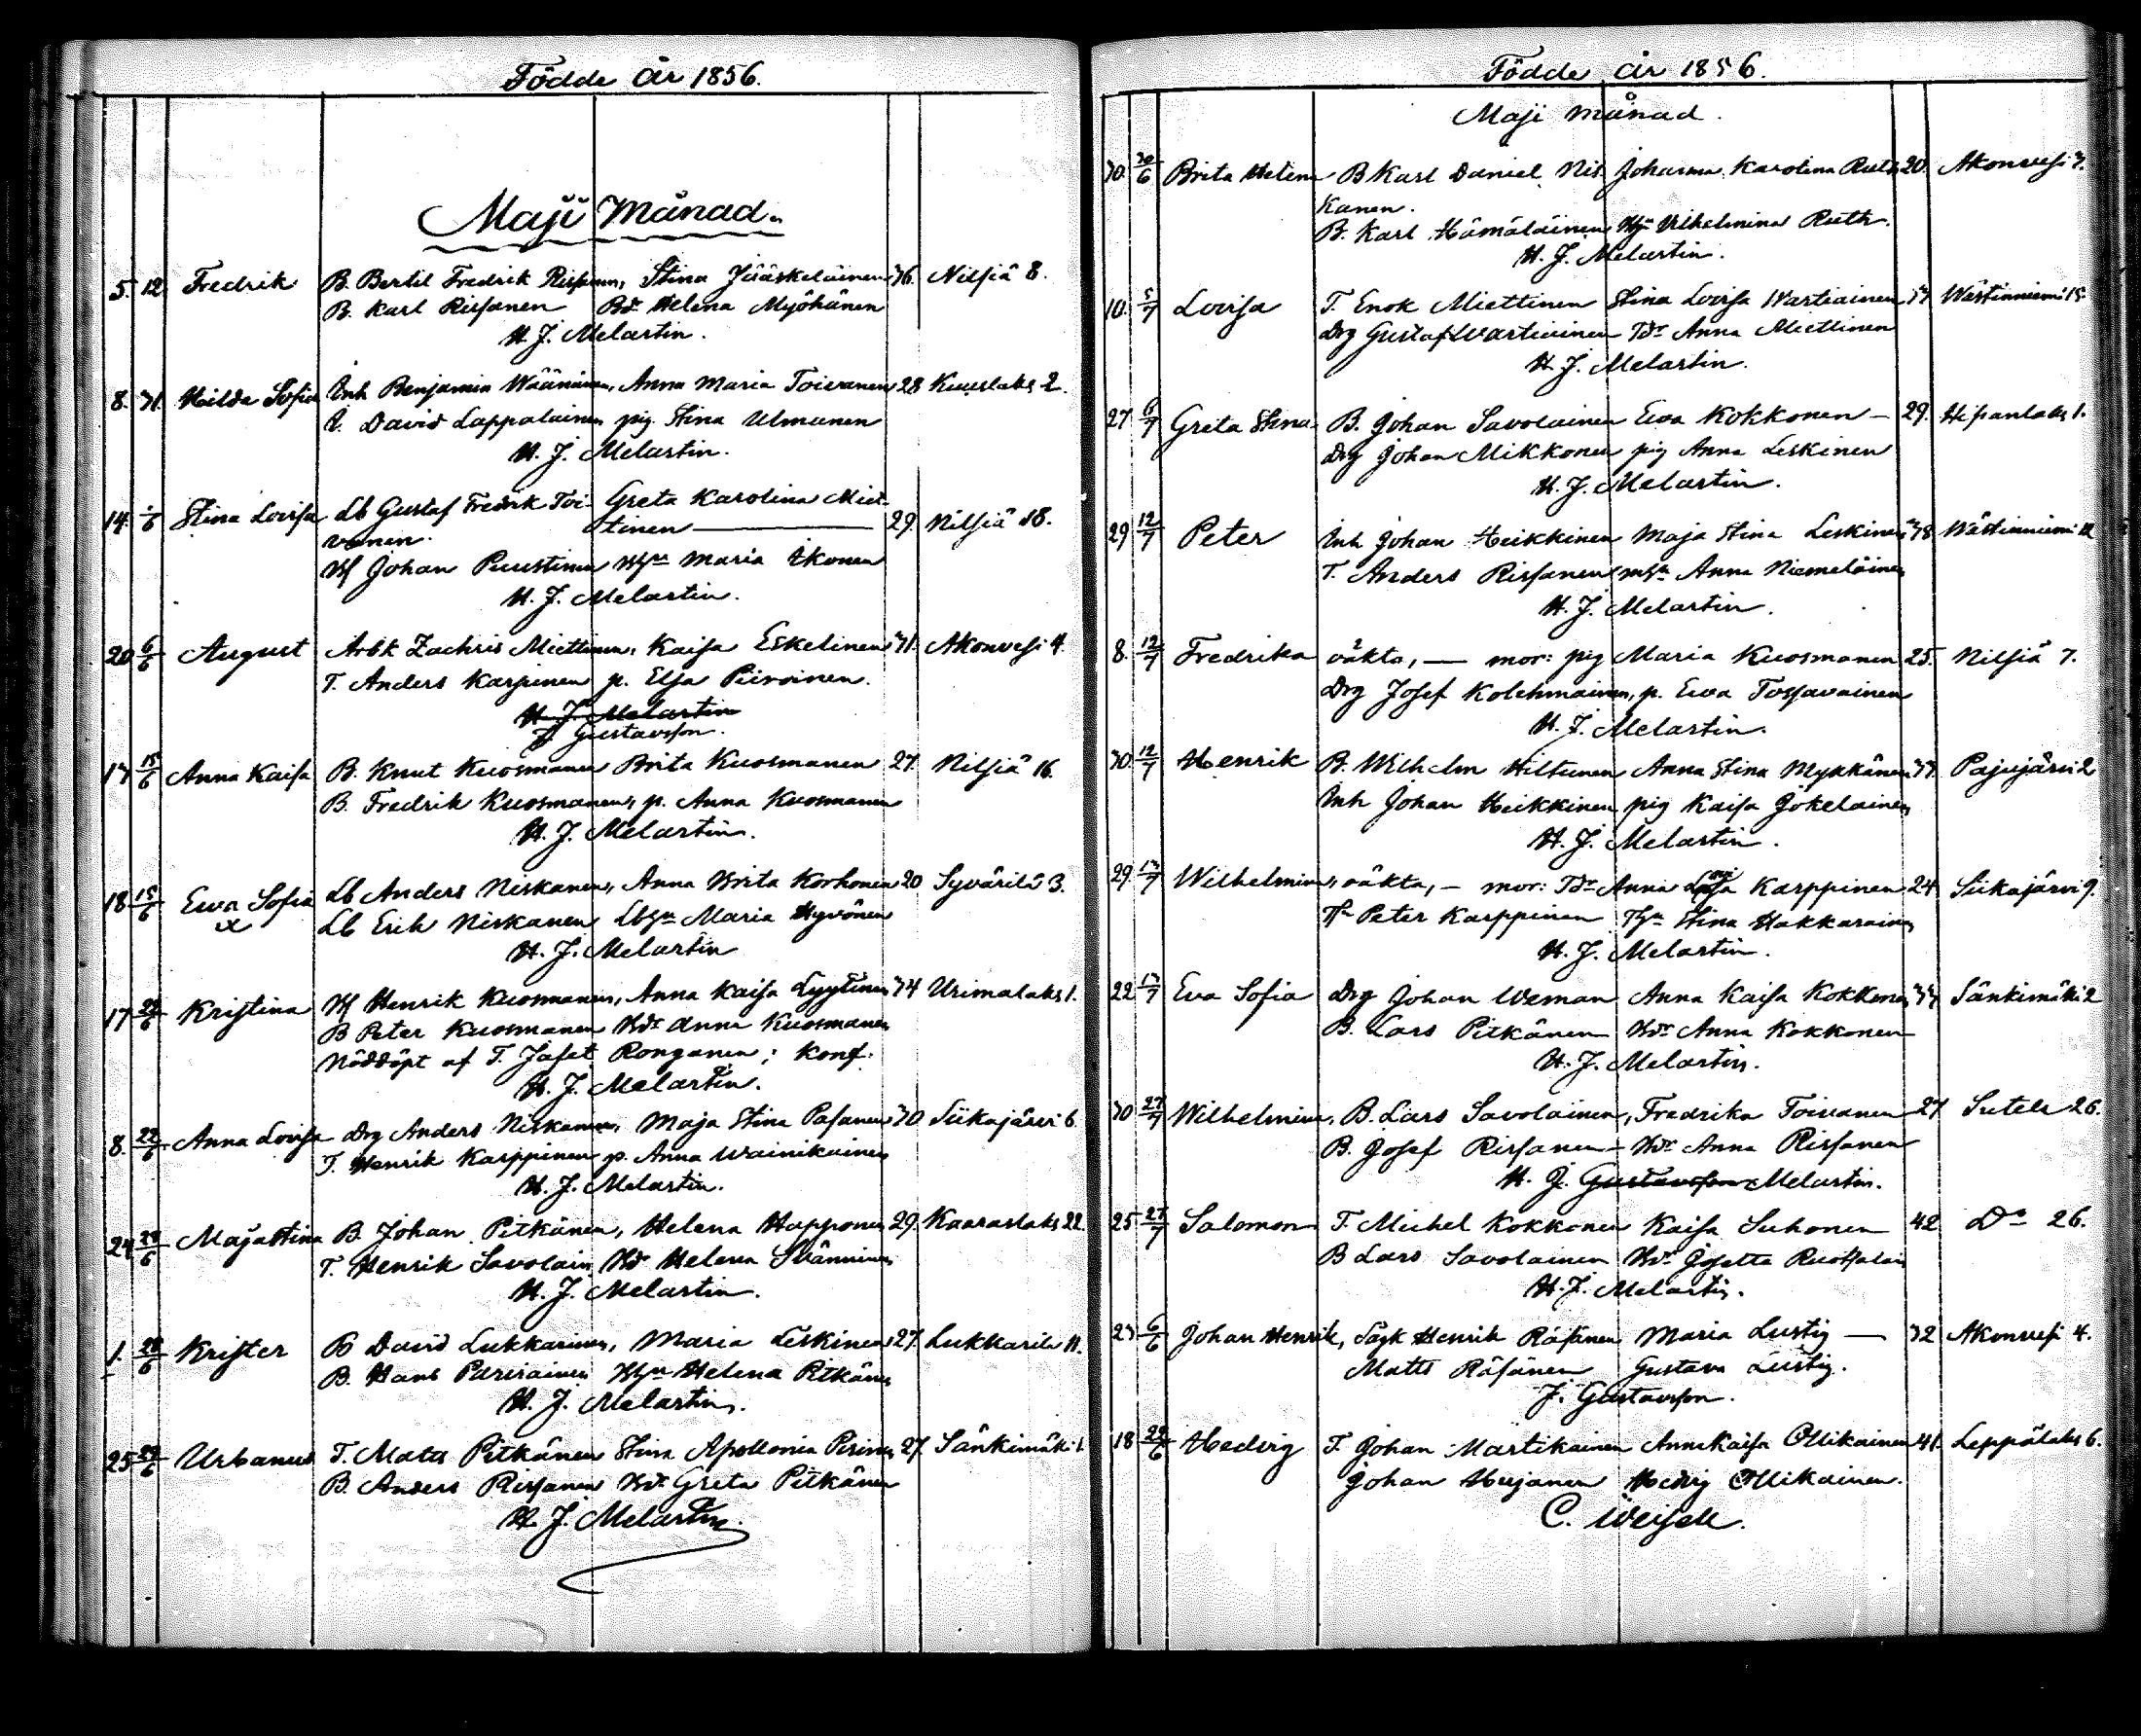 Födde År 1856.
Maji Månad.
5. 12 Fredrik B. Bertil Fredrik Rissanen, Stina Jääskeläinen 36. Nilsiä 8.
B. Karl Rissanen Bdr Helena Myöhänen
H. J. Melartin.
8. 31. Hilda Sofia Inh Benjamin Wäänänen, Anna Maria Toivanen 28 Kuuslaks 2.
I. David Lappalainen pig. Stina Ulmanen
H. J. Melartin.
14. 1/6 Stina Lovisa Lb Gustaf Fredrik Toi- Greta Karolina Miet-
vanen. tinen — 29. Nilsiä 18.
Bf Johan Puustinen Bfhu Maria Ikonen
H. J. Melartin.
20 6/6 August Arbk Zachris Miettinen, Kaisa Eskelinen 31. Akonvesi 4.
T. Anders Karpinen p. Elsa Piiroinen.
H. J. Melartin
J. Gustavsson.
13 15/6 Anna Kaisa B. Knut Kuosmanen Brita Kuosmanen 27. Nilsiä 16.
B. Fredrik Kuosmanen, p. Anna Kuosmanen
H. J. Melartin.
18 15/6 Ewa Sofia Lb Anders Niskanen, Anna Brita Korhonen 20 Syvärilä 3.
x Lb Erik Niskanen Lbhu Maria Hyvönen
H. J. Melartin
17 22/6 Kristina Bf Henrik Kuosmanen, Anna Kaisa Lyytinen 34 Urimalaks 1.
B Peter Kuosmanen Bdr Anna Kuosmanen
Nöddöpt af T. Jafet Ronganen; Konf.
H. J. Melartin.
8. 22/6 Anna Lovisa Drg Anders Niskanen, Maja Stina Pasanen 30. Siikajärvi 6.
T. Henrik Karppinen p. Anna Wainikainen
H. J. Melartin.
24 28/6 Maja Stina B. Johan Pitkänen, Helena Happonen 29. Kaaraslaks 22.
T. Henrik Savolain Bdr Helena Svänninen
H. J. Melartin.
1. 28/6 Krister B David Lukkarinen, Maria Leskinen 27. Lukkarila 11.
B. Hans Parviainen Bhu Helena Pitkänen
H. J. Melartin.
25 29/6 Urbanus T. Matts Pitkänen Stina Apollonia Pirinen 27. Sänkimäki 1.
B. Anders Rissanen Bdr Greta Pitkänen
H. J. Melartin.
Födde år 1856.
Maji månad.
30. 30/6 Brita Helena B Karl Daniel Nis- Johanna Karolina Ruth 20. Akonvesi 3.
kanen.
B. Karl Hämäläinen Hu Vilhelmina Ruth.
H. J. Melartin.
10. 5/7 Lovisa T. Enok Miettinen Stina Lovisa Wartiainen Wästinniemi 15.
Drg Gustaf Wartiainen Tdr Anna Miettinen
H. J. Melartin.
27 6/7 Greta Stina B. Johan Savolainen Ewa Kokkonen — 29. Hipanlaks 1.
Drg Johan Mikkonen pig Anna Leskinen
H. J. Melartin.
29 12/7 Peter Inh Johan Heikkinen Maja Stina Leskinen 38 Wästinniemi 12
T. Anders Rissanen Anna Niemeläinen
H. J. Melartin.
8. 12/7 Fredrika oäkta, — mor: pig Maria Kuosmanen 25. Nilsiä 7.
Drg Josef Kolehmainen, p. Ewa Tossavainen
H. J. Melartin.
30. 12/7 Henrik B. Wilhelm Hiltunen Anna Stina Mykkänen 33. Pajujärvi 2
Inh Johan Heikkinen pig Kaisa Jokelainen
H. J. Melartin.
29. 13/7 Wilhelmina, oäkta, — mor: Tdr Anna Karppinen 24 Siikajärvi 9.
Tn Peter Karppinen Thu Stina Hakkarainen
H. J. Melartin.
22 13/7 Eva Sofia Drg Johan Weman Anna Kaisa Kokkonen Sänkimäki 2
B. Lars Pitkänen Bdr Anna Kokkonen
H. J. Melartin.
30 27/7 Wilhelmina, B. Lars Savolainen, Fredrika Toivanen 27. Sutela 26.
B. Josef Rissanen Bdr Anna Rissanen
H. J. Gustavsson Melartin.
25 27/7 Salomon T. Michel Kokkonen Kaisa Suhonen 42. Do 26.
B Lars Savolainen Bdr Josetta Ruotsalain
H. J. Melartin.
23 6/6 Johan Henrik, Sågk Henrik Räsänen Maria Lustig — 32 Akonvesi 4.
Matts Räsänen Gustava Lustig.
J. Gustavsson.
18 22/6 Hedvig T. Johan Martikainen Anna Kaisa Ollikainen 41. Leppälaks 6.
Johan Hujanen Hedvig Ollikainen.
C. Weisell.